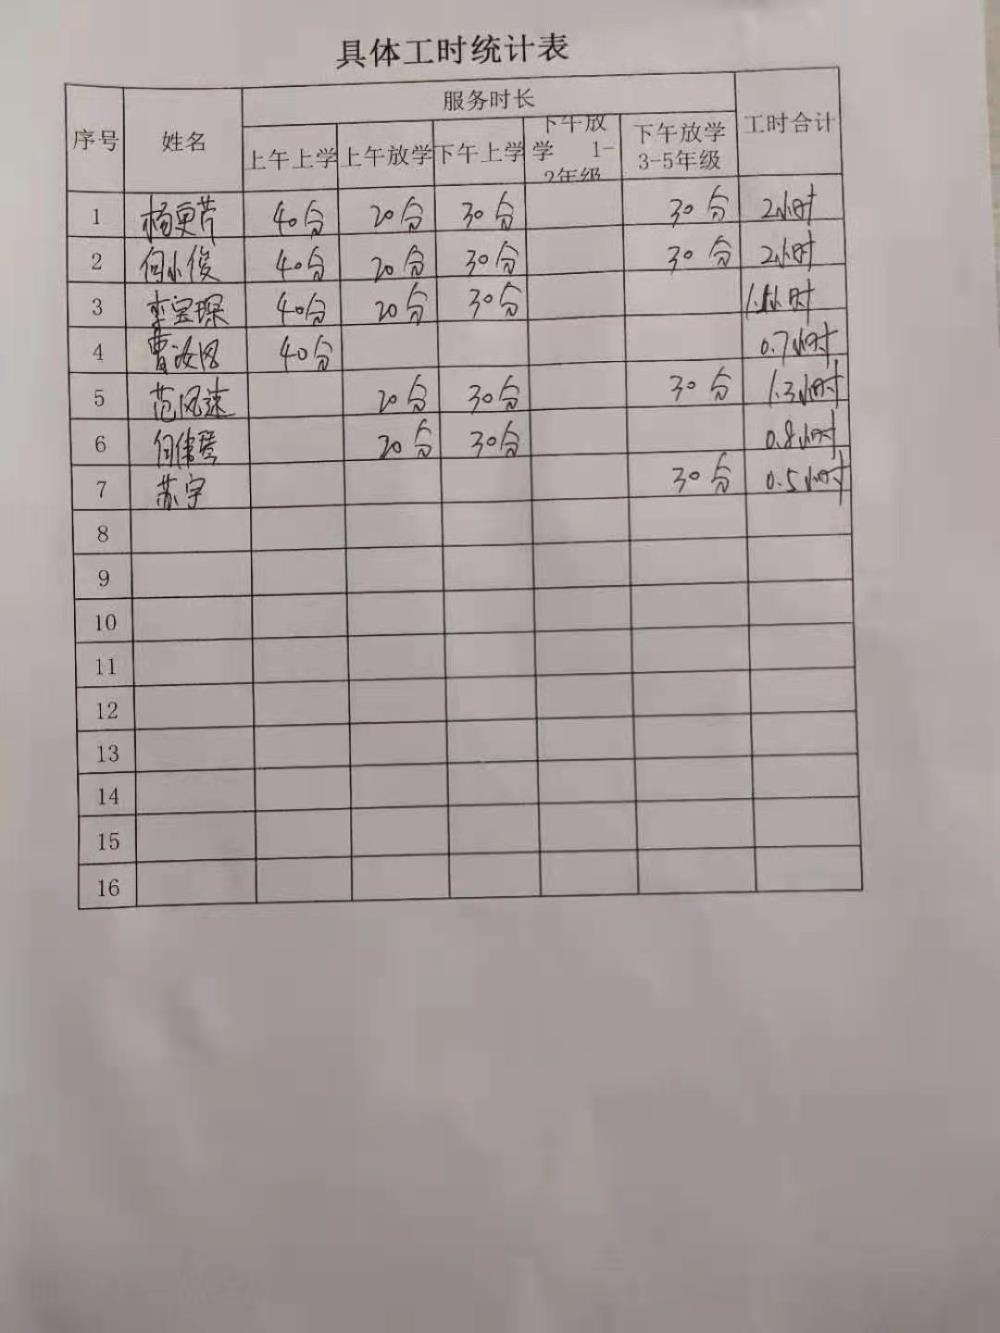 具体工时统计表
序号 姓名 服务时长 工时合计
上午上学 上午放学 下午上学 下午放学 1-2年级 下午放学3-5年级
1 杨更芹 40分 20分 30分 30分 2小时
2 何小俊 40分 20分 30分 30分 2小时
3 李宝琛 40分 20分 30分 小时
4 曹 40分 0.7小时
5 范凤 20分 30分 30分 1.3小时
6 何伟琴 20分 30分 0.8小时
7 苏宇 30分 0.5小时
8
9
10
11
12
13
14
15
16